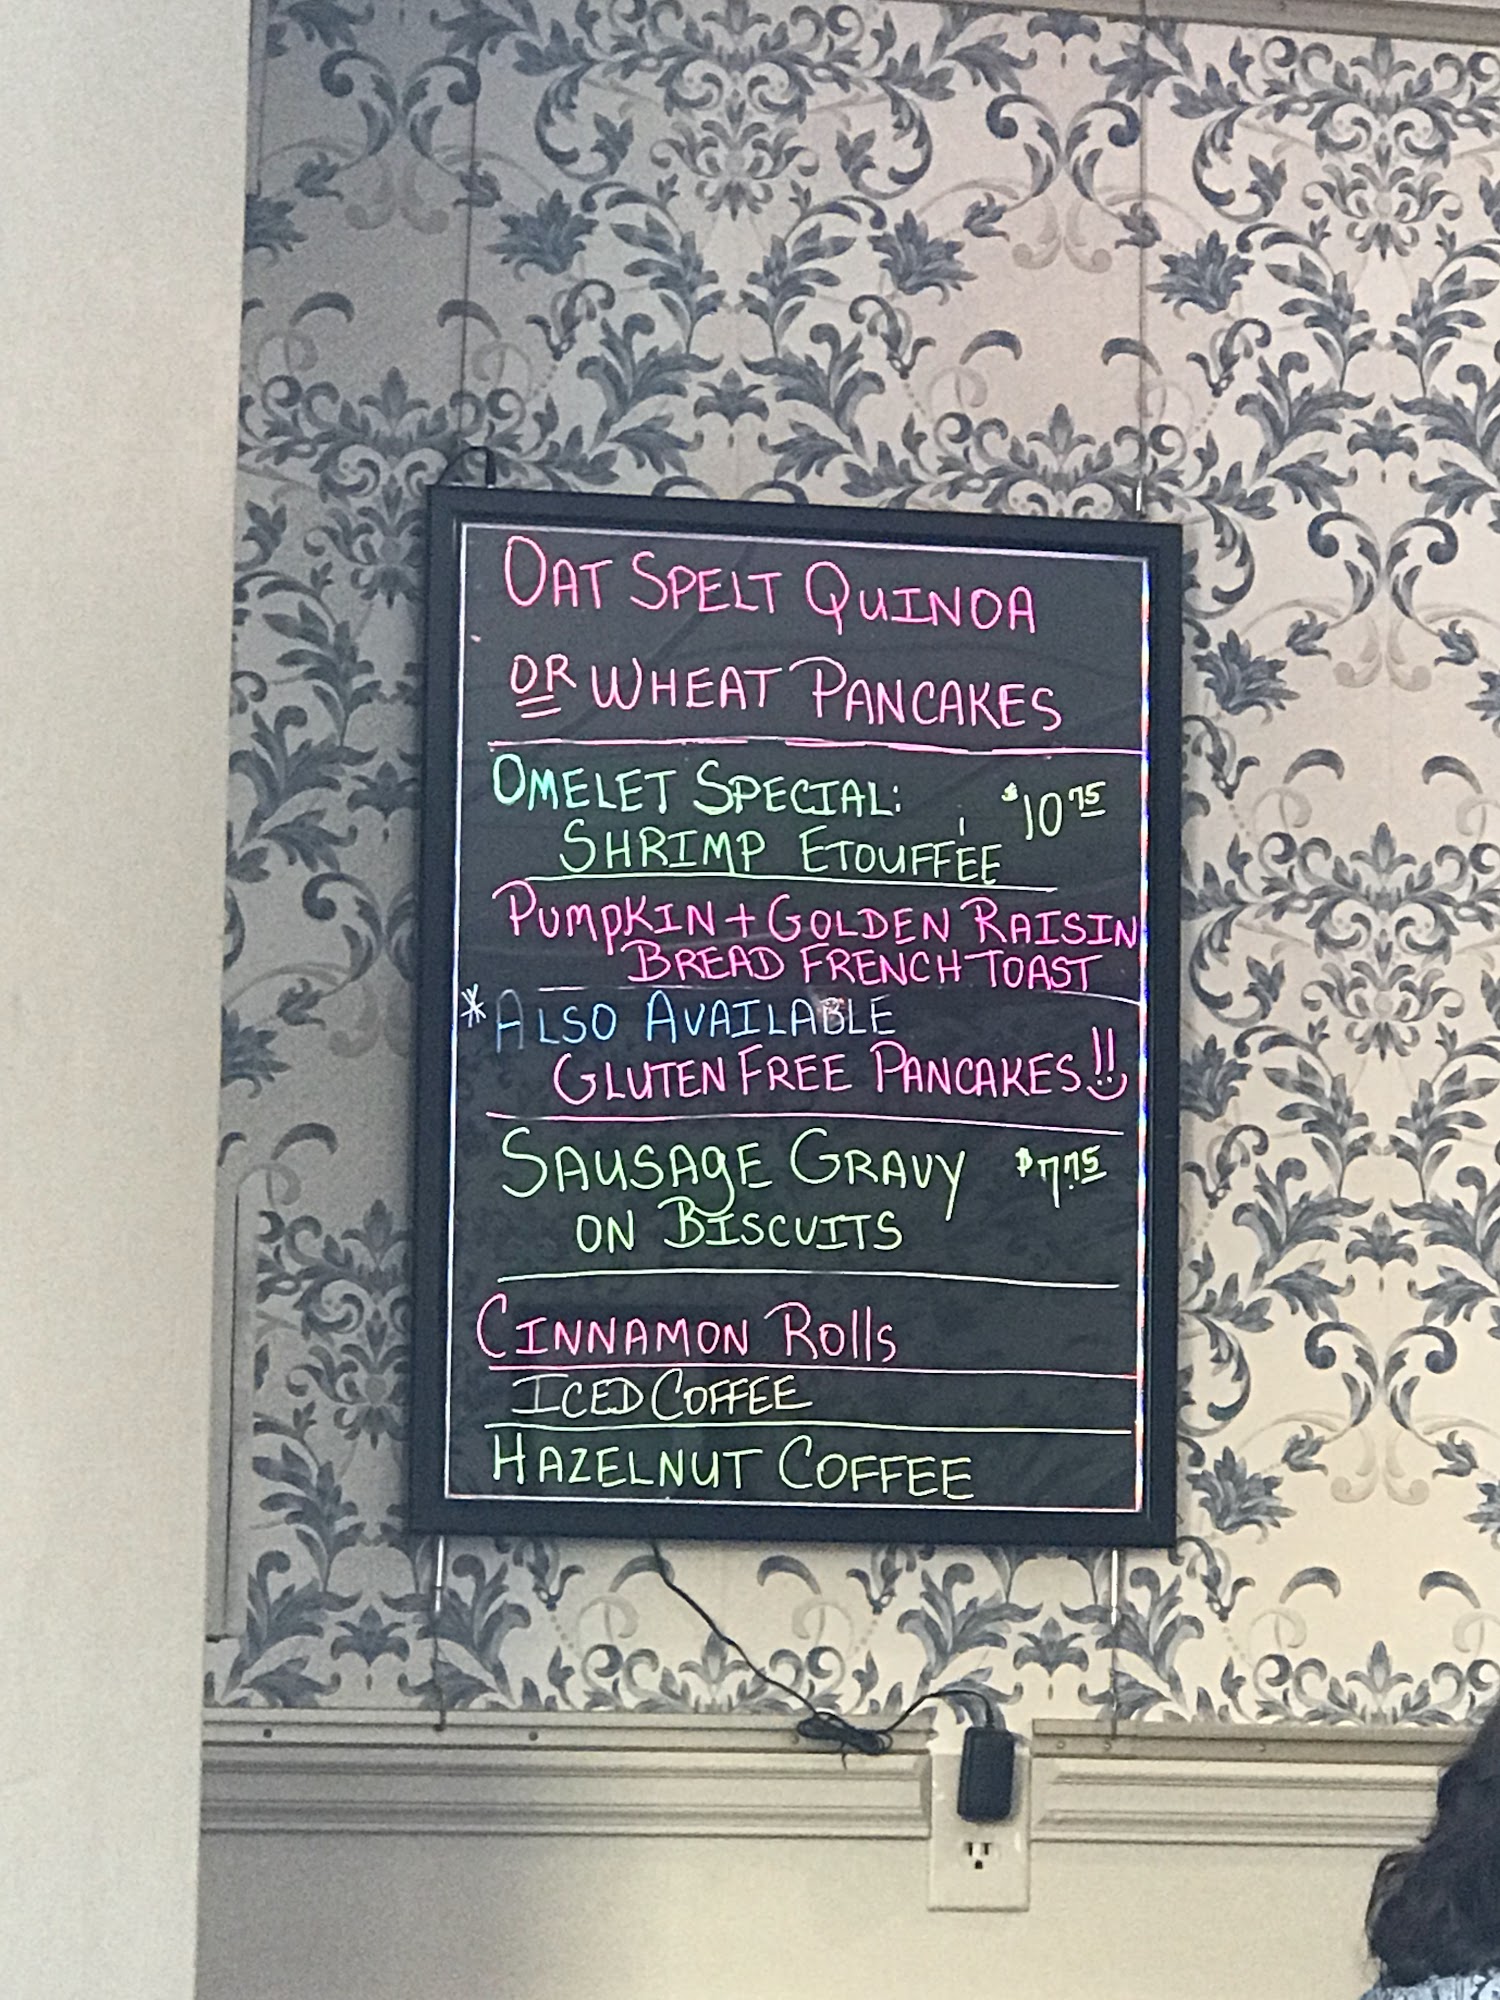 OAT SPELT QUINOA
OR WHEAT PANCAKES
OMELET SPECIAL: $10.75
SHRIMP ETOUFFÉE
PUMPKIN + GOLDEN RAISIN
BREAD FRENCH TOAST
*ALSO AVAILABLE
GLUTEN FREE PANCAKES!!
SAUSAGE GRAVY $7.75
ON BISCUITS
CINNAMON Rolls
ICED COFFEE
HAZELNUT COFFEE